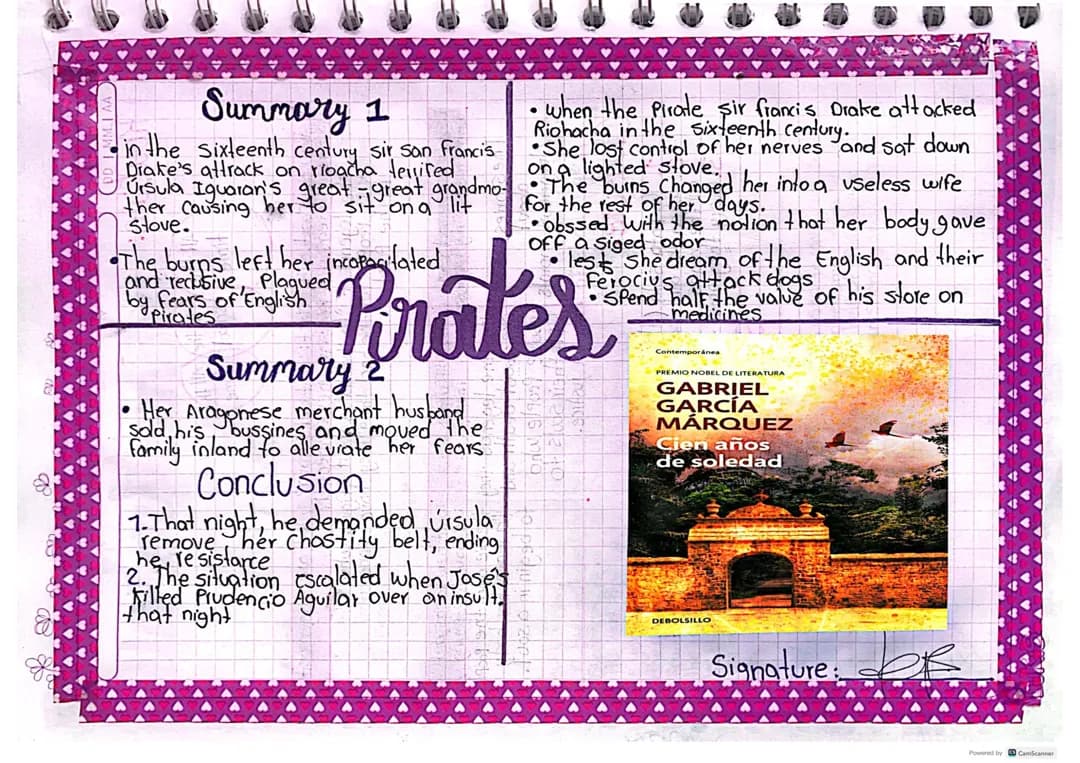 Summary 1
• in the Sixteenth century sir san Francis
Drake's attrack on rioacha terrified
Úrsula Iguaran's great-great grandmo-
ther causing her to sit on a lit
stove.
• The burns left her incapacitated
and reclusive, Plagued
by fears of English
Pirates
• when the Pirate sir francis Drake attacked
Riohacha in the Sixteenth century.
• She lost control of her nerves and sat down
on a lighted stove.
• The burns changed her into a useless wife
for the rest of her days.
• obssed with the notion that her body gave
off a siged odor
• lest she dream of the English and their
Ferocius attack dogs
• Spend half the value of his store on
medicines
Pirates
Summary 2
• Her Aragonese merchant husband
sold his bussines and moved the
family inland to alleviate her fears
Conclusion
1. That night, he demanded Úrsula
remove her chastity belt, ending
he resistance
2. The situation escalated when José's
killed Prudencio Aguilar over an insult.
that night
Contemporánea
PREMIO NOBEL DE LITERATURA
GABRIEL
GARCÍA
MÁRQUEZ
Cien años
de soledad
DEBOLSILLO
Signature:
Powered by CS CamScanner